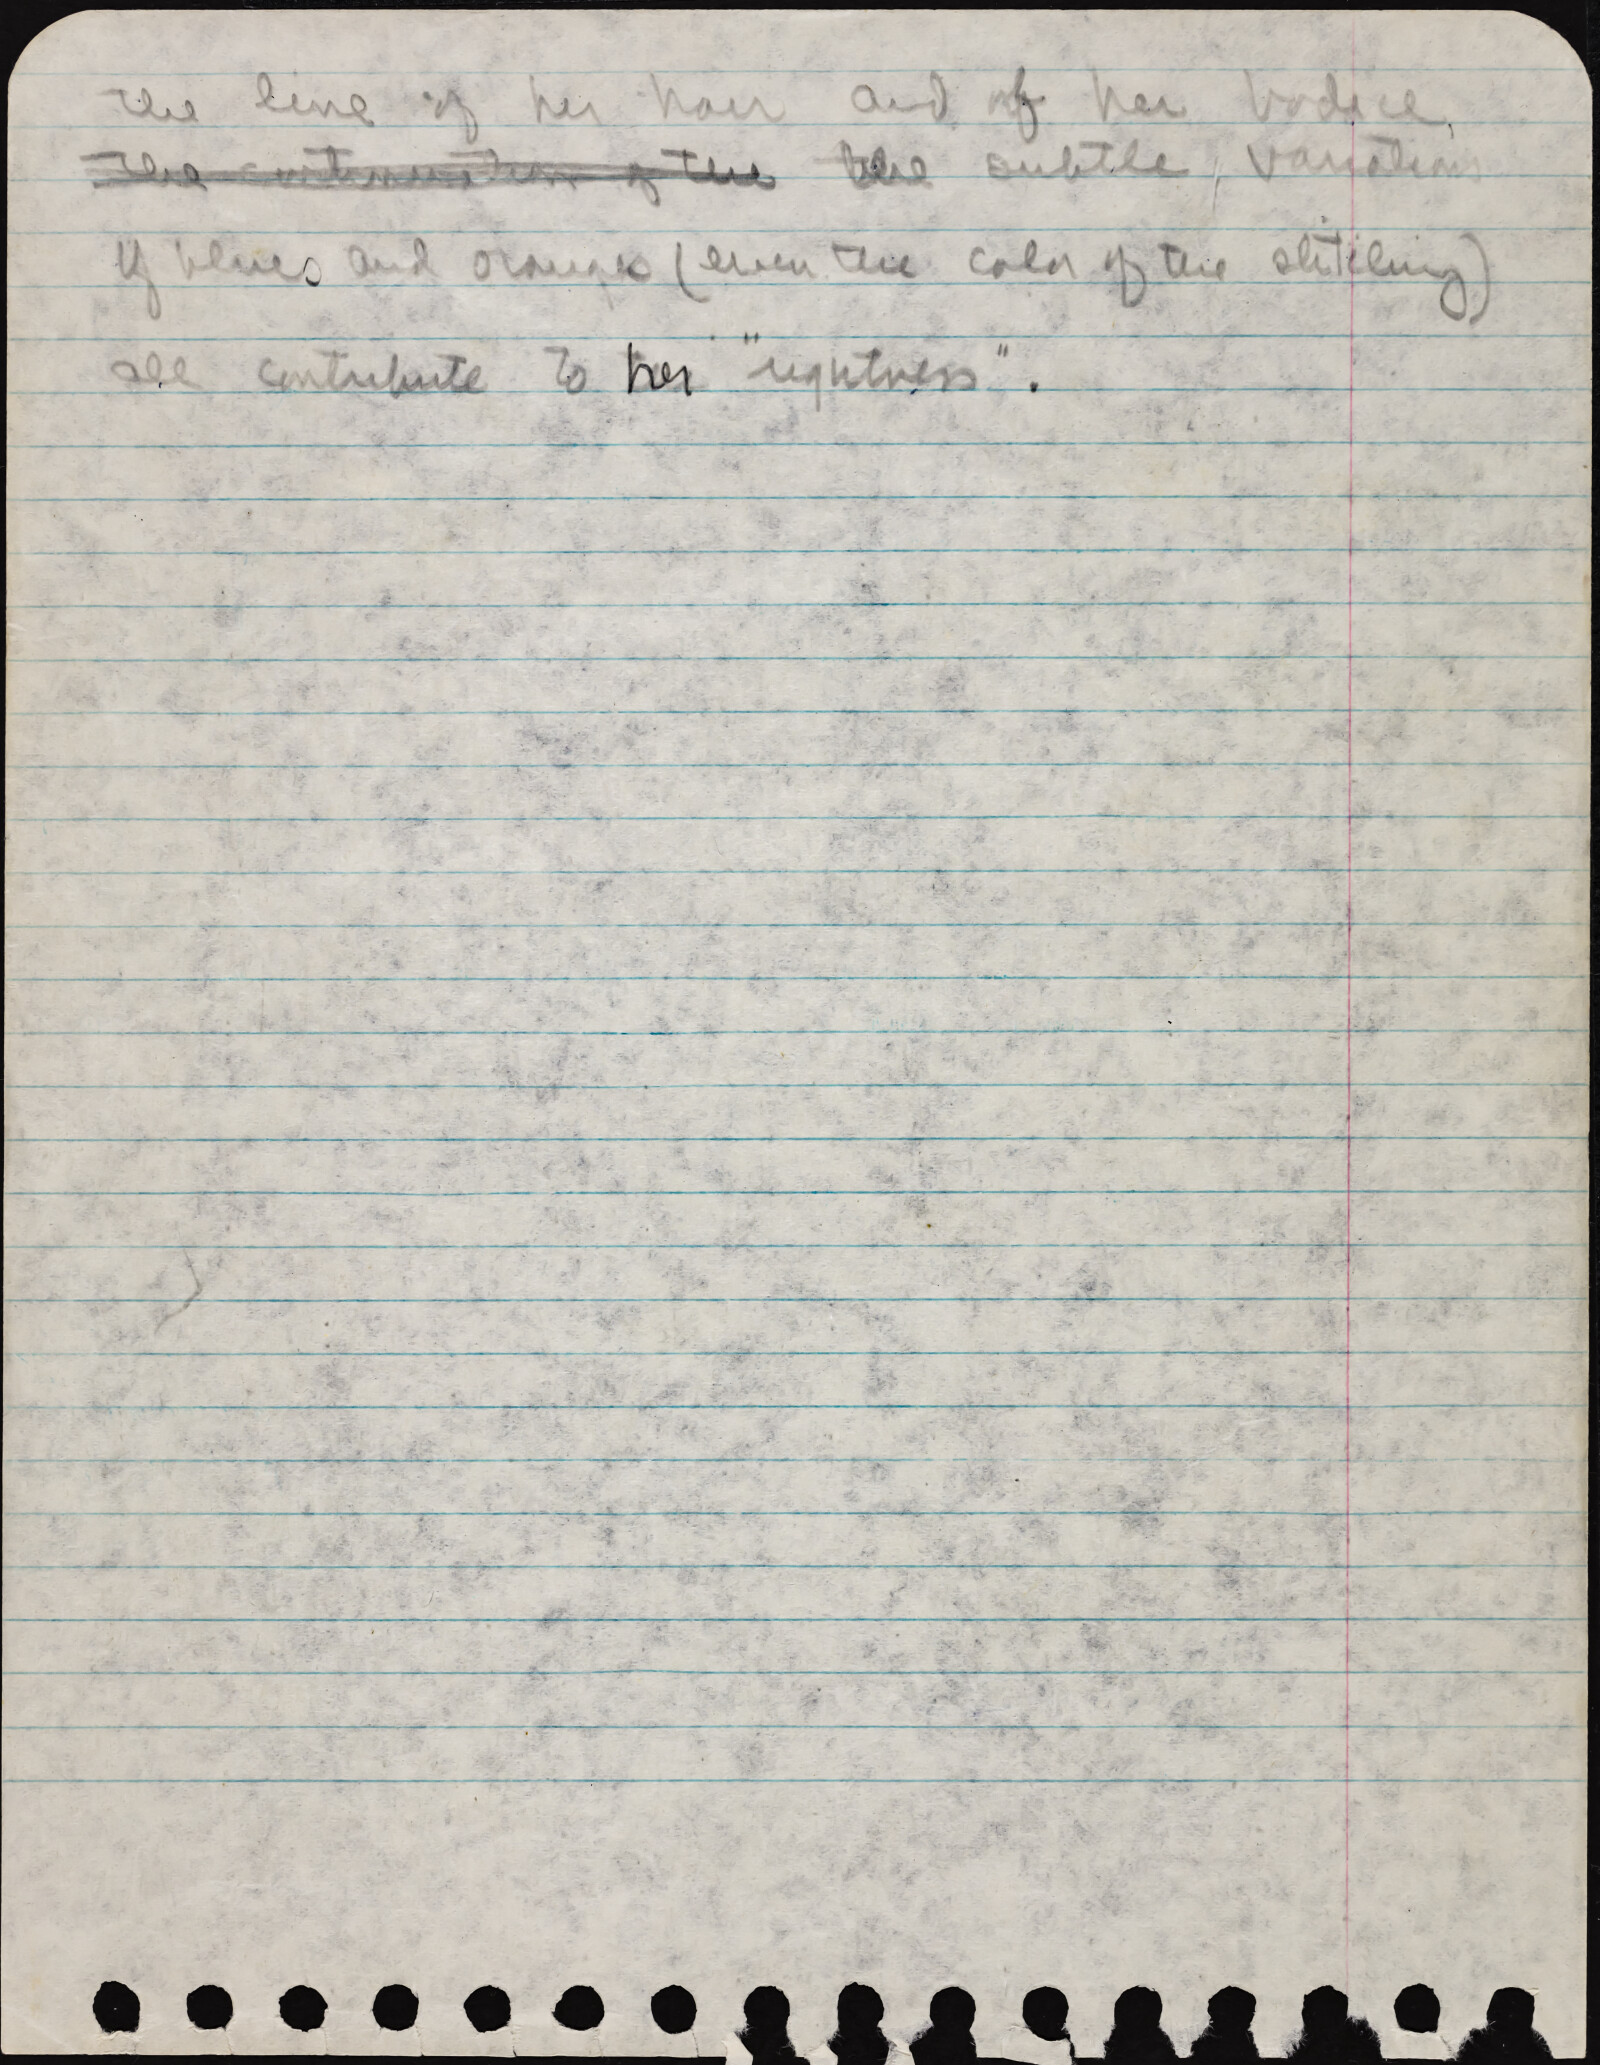 the line of her hair and of her bodice,
the continuation of the the subtle, variations
of blues and oranges (even the color of the stitching)
all contribute to her "rightness".